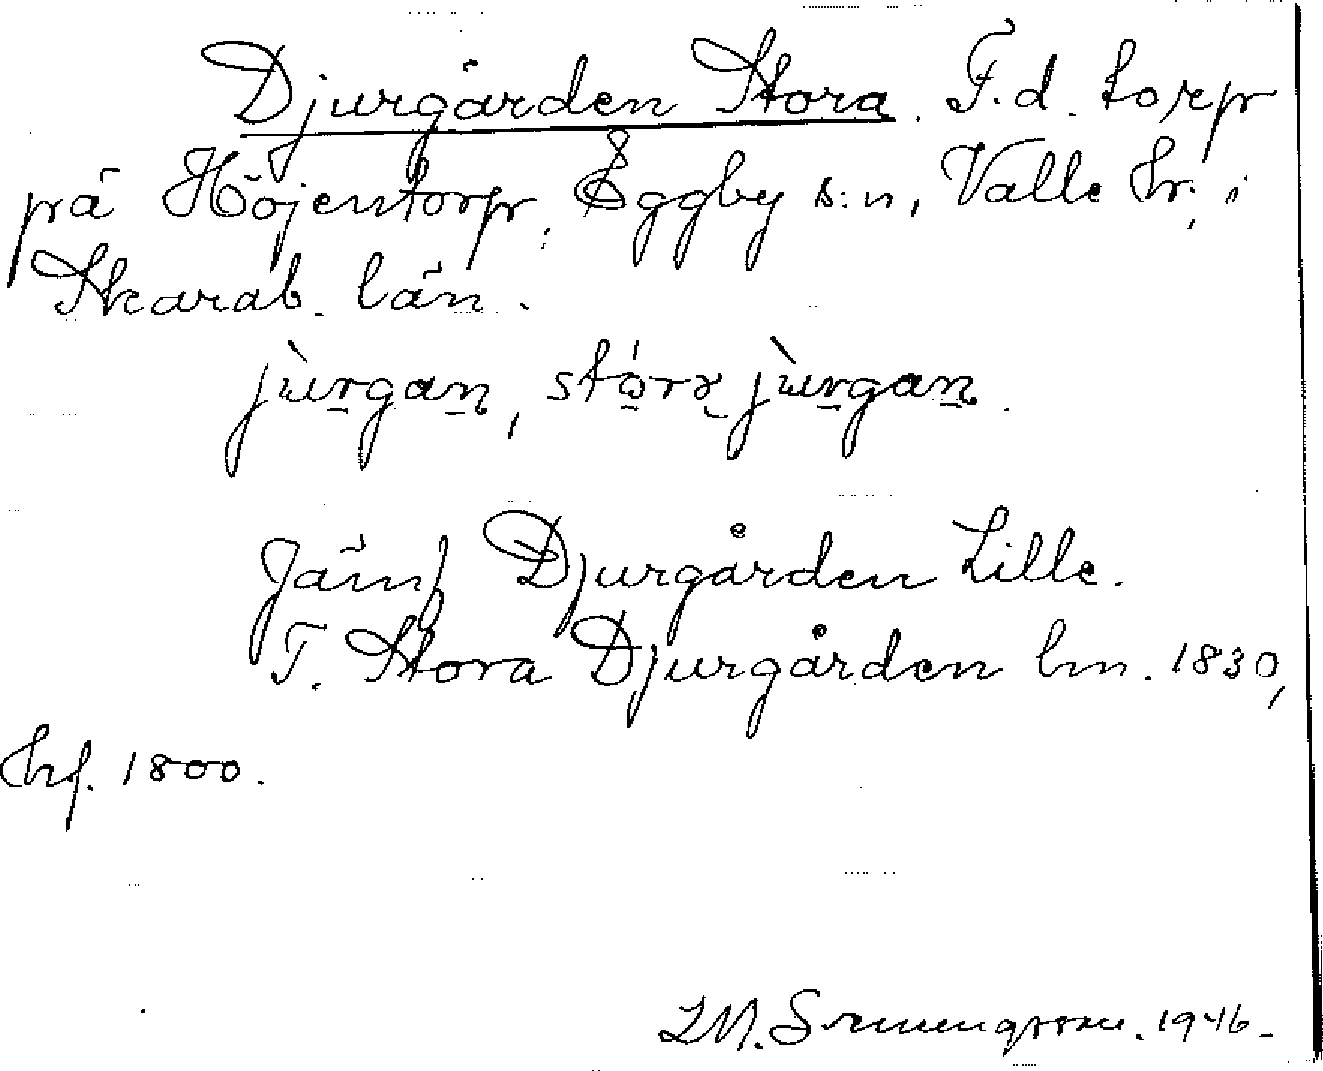 Djurgården Stora. F.d. torp
på Höjentorp, Eggby s:n, Valle hr. i
Skarab. län.
jùrgan, stórɤ jùrgan.
Jämf Djurgården Lille.
T. Stora Djurgården hm. 1830,
hrf. 1800.
1946